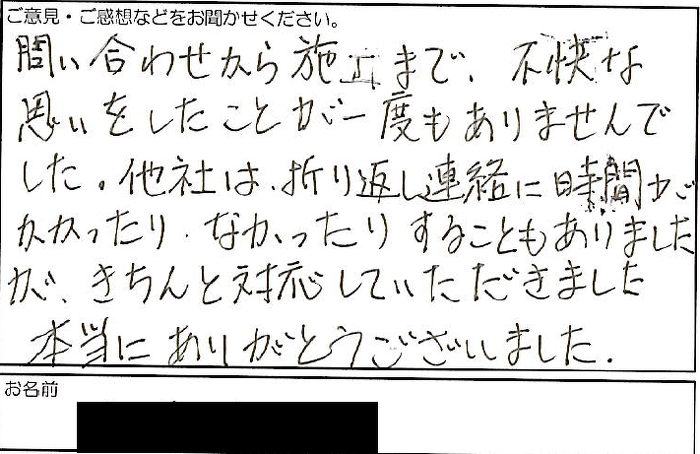 ご意見・ご感想などをお聞かせください。
問い合わせから施工まで、不快な
思いをしたことが一度もありませんで
した。他社は、折り返し連絡に時間が
かかったり、なかったりすることもありました
が、きちんと対応していただきました
本当にありがとうございました.
お名前